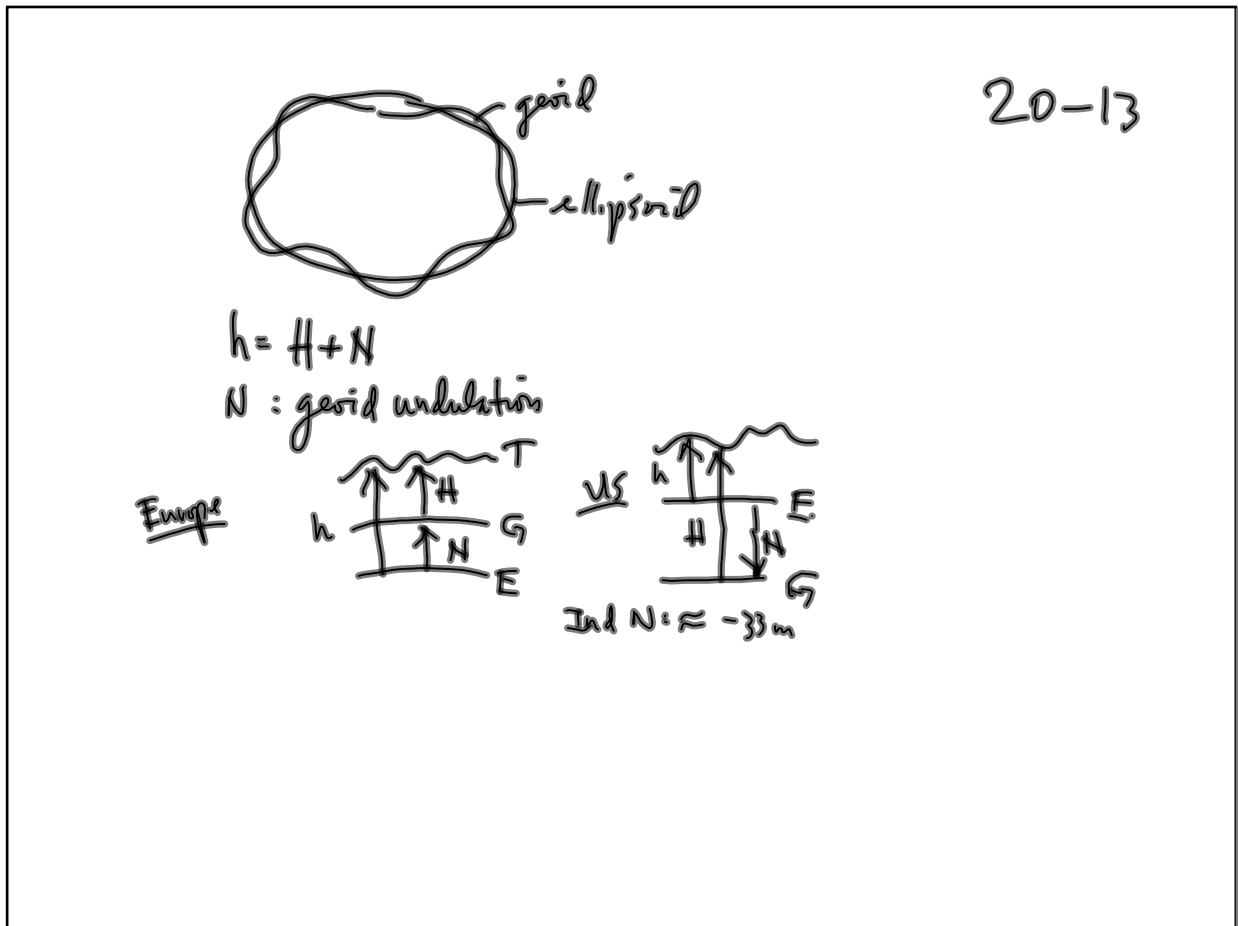 20-13
geoid
ellipsoid
h = H + N
N : geoid undulation
Europe
T
H
h
G
N
E
US
h
E
H
N
G
Ind N: ≈ -33m